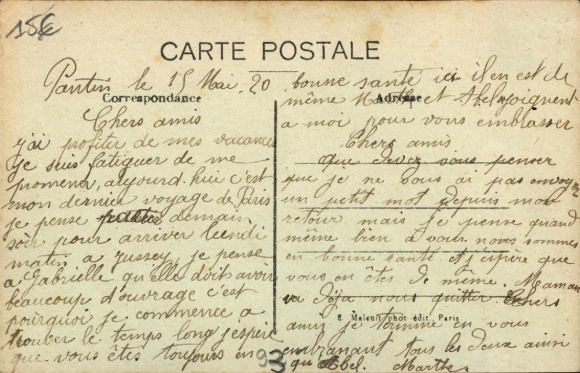 15€
CARTE POSTALE
Correspondance
Adresse
Pantin le 15 Mai. 20
Chers amis
j'ai profiter de mes vacances
je suis fatiguer de me
promener, aujourd. hui c'est
mon dernier voyage de Paris
je pense partir demain
soir pour arriver lundi
matin a Jussey, je pense
a Gabrielle qu'elle doit avoir
beaucoup d'ouvrage c'est
pourquoi je commence a
trouber le temps long j'espere
que vous êtes toujours en
bonne santé ici il en est de
même Marthe et Abel se joignent
a moi pour vous emblasser
Chers amis
que devez vous penser
que je ne vous ai pas envoyez
un petit mot depuis mon
retour mais je pense quand
même bien à vous. nous sommes
en bonne santé et j'espire que
vous en êtes de même. Maman
va déja nous quitter Chers
amis je termine en vous
embrassant tous les deux ainsi
qu'Abel. Marthe
E. Malcuit phot édit. Paris
93